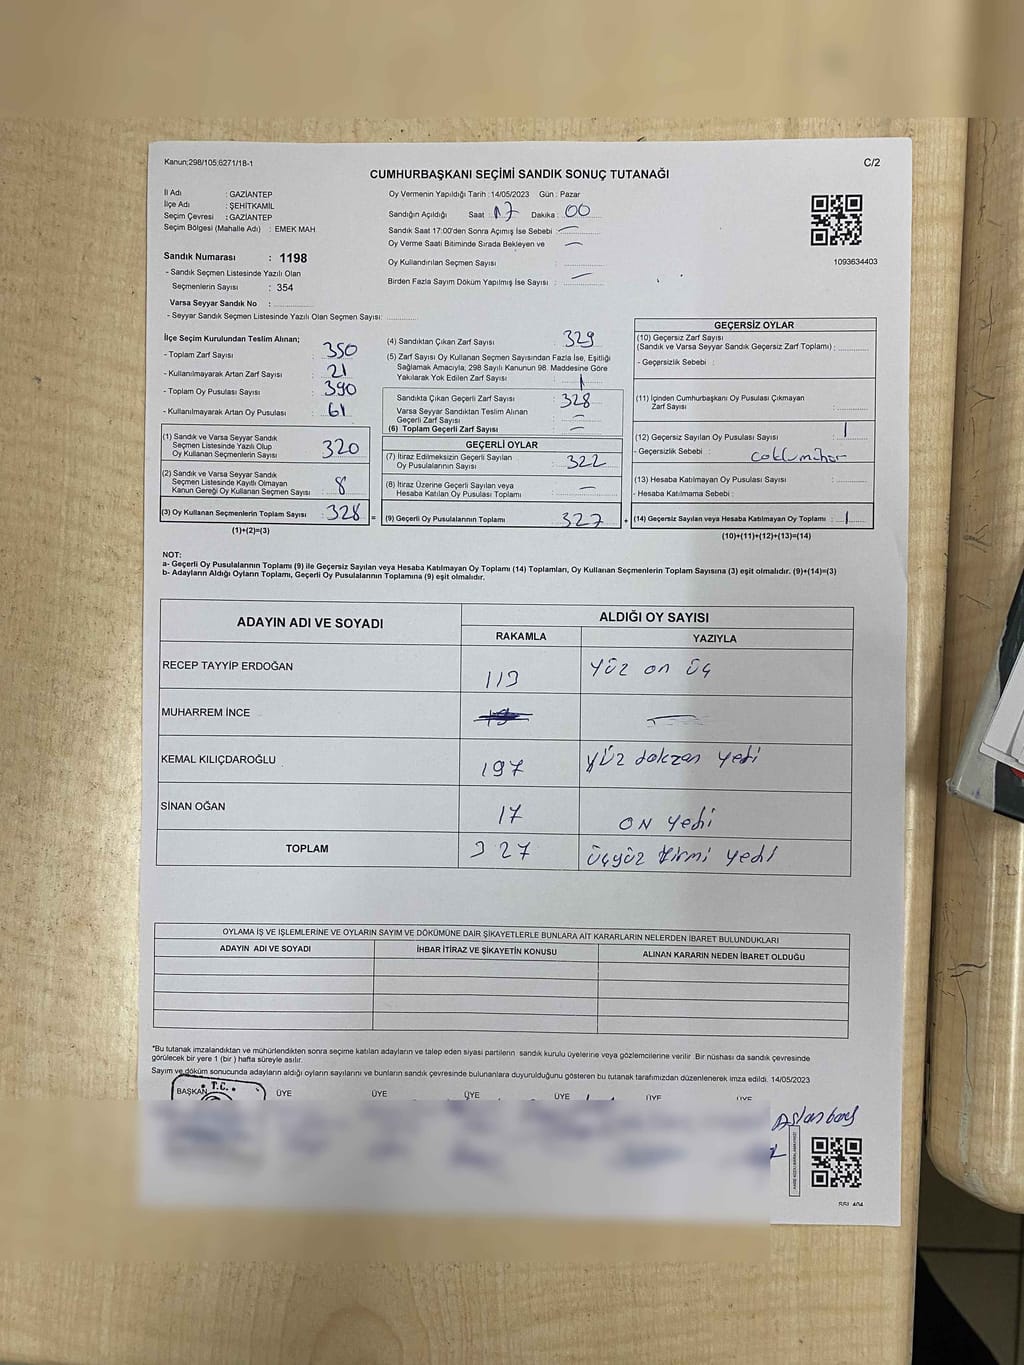 Kanun:298/105,6271/18-1
C/2
CUMHURBAŞKANI SEÇİMİ SANDIK SONUÇ TUTANAĞI
İl Adı : GAZİANTEP
İlçe Adı : ŞEHİTKAMİL
Seçim Çevresi : GAZİANTEP
Seçim Bölgesi (Mahalle Adı) : EMEK MAH
Sandık Numarası : 1198
- Sandık Seçmen Listesinde Yazılı Olan
Seçmenlerin Sayısı : 354
Varsa Seyyar Sandık No :
- Seyyar Sandık Seçmen Listesinde Yazılı Olan Seçmen Sayısı:
Oy Vermenin Yapıldığı Tarih : 14/05/2023 Gün : Pazar
Sandığın Açıldığı Saat : 17 Dakika : 00
Sandık Saat 17:00'den Sonra Açımış İse Sebebi : —
Oy Verme Saati Bitiminde Sırada Bekleyen ve —
Oy Kullandırılan Seçmen Sayısı :
Birden Fazla Sayım Döküm Yapılmış İse Sayısı : —
1093634403
İlçe Seçim Kurulundan Teslim Alınan;
- Toplam Zarf Sayısı : 350
- Kullanılmayarak Artan Zarf Sayısı : 21
- Toplam Oy Pusulası Sayısı : 390
- Kullanılmayarak Artan Oy Pusulası : 61
(1) Sandık ve Varsa Seyyar Sandık
Seçmen Listesinde Yazılı Olup
Oy Kullanan Seçmenlerin Sayısı : 320
(2) Sandık ve Varsa Seyyar Sandık
Seçmen Listesinde Kayıtlı Olmayan
Kanun Gereği Oy Kullanan Seçmen Sayısı : 8
(3) Oy Kullanan Seçmenlerin Toplam Sayısı : 328 =
(1)+(2)=(3)
(4) Sandıktan Çıkan Zarf Sayısı : 329
(5) Zarf Sayısı Oy Kullanan Seçmen Sayısından Fazla İse, Eşitliği
Sağlamak Amacıyla; 298 Sayılı Kanunun 98. Maddesine Göre
Yakılarak Yok Edilen Zarf Sayısı : 1
Sandıkta Çıkan Geçerli Zarf Sayısı : 328
Varsa Seyyar Sandıktan Teslim Alınan
Geçerli Zarf Sayısı : —
(6) Toplam Geçerli Zarf Sayısı : —
GEÇERLİ OYLAR
(7) İtiraz Edilmeksizin Geçerli Sayılan
Oy Pusulalarının Sayısı : 322
(8) İtiraz Üzerine Geçerli Sayılan veya
Hesaba Katılan Oy Pusulası Toplamı : —
(9) Geçerli Oy Pusulalarının Toplamı : 327 +
GEÇERSİZ OYLAR
(10) Geçersiz Zarf Sayısı
(Sandık ve Varsa Seyyar Sandık Geçersiz Zarf Toplamı) :
- Geçersizlik Sebebi :
(11) İçinden Cumhurbaşkanı Oy Pusulası Çıkmayan
Zarf Sayısı :
(12) Geçersiz Sayılan Oy Pusulası Sayısı : 1
- Geçersizlik Sebebi :
(13) Hesaba Katılmayan Oy Pusulası Sayısı :
- Hesaba Katılmama Sebebi :
(14) Geçersiz Sayılan veya Hesaba Katılmayan Oy Toplamı : 1
(10)+(11)+(12)+(13)=(14)
NOT:
a- Geçerli Oy Pusulalarının Toplamı (9) ile Geçersiz Sayılan veya Hesaba Katılmayan Oy Toplamı (14) Toplamları, Oy Kullanan Seçmenlerin Toplam Sayısına (3) eşit olmalıdır. (9)+(14)=(3)
b- Adayların Aldığı Oyların Toplamı, Geçerli Oy Pusulalarının Toplamına (9) eşit olmalıdır.
ADAYIN ADI VE SOYADI ALDIĞI OY SAYISI
RAKAMLA YAZIYLA
RECEP TAYYİP ERDOĞAN 113 yüz on üç
MUHARREM İNCE —
KEMAL KILIÇDAROĞLU 197 yüz dokzan yedi
SİNAN OĞAN 17 ON yedi
TOPLAM 327 üçyüz yirmi yedi
OYLAMA İŞ VE İŞLEMLERİNE VE OYLARIN SAYIM VE DÖKÜMÜNE DAİR ŞİKAYETLERLE BUNLARA AİT KARARLARIN NELERDEN İBARET BULUNDUKLARI
ADAYIN ADI VE SOYADI İHBAR İTİRAZ VE ŞİKAYETİN KONUSU ALINAN KARARIN NEDEN İBARET OLDUĞU
*Bu tutanak imzalandıktan ve mühürlendikten sonra seçime katılan adayların ve talep eden siyasi partilerin sandık kurulu üyelerine veya gözlemcilerine verilir. Bir nüshası da sandık çevresinde
görülecek bir yere 1 (bir ) hafta süreyle asılır.
Sayım ve döküm sonucunda adayların aldığı oyların sayılarını ve bunların sandık çevresinde bulunanlara duyurulduğunu gösteren bu tutanak tarafımızdan düzenlenerek imza edildi. 14/05/2023
T.C.
BAŞKAN ÜYE ÜYE ÜYE ÜYE ÜYE ÜYE